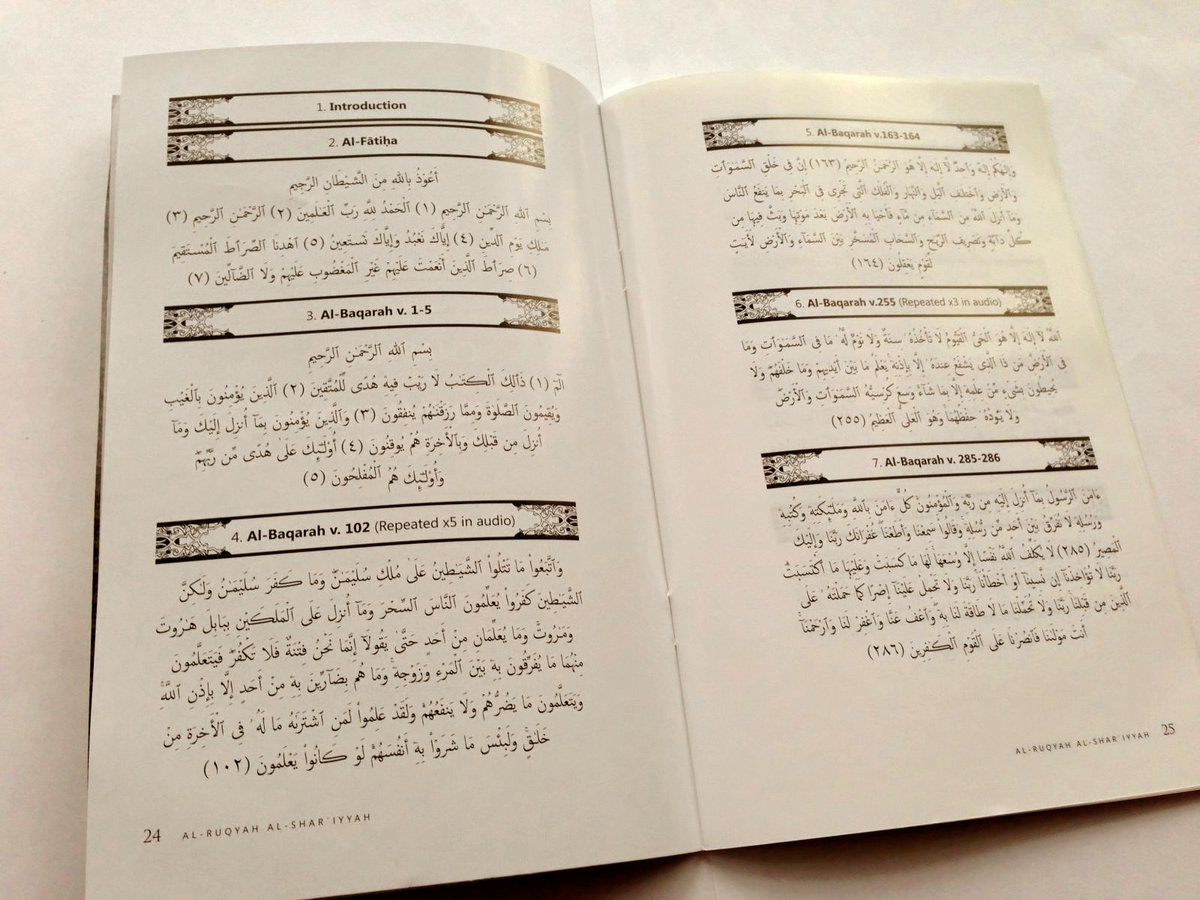 1. Introduction
2. Al-Fātiḥa
أَعُوذُ بِٱللَّهِ مِنَ الشَّيْطَانِ الرَّجِيمِ
بِسْمِ ٱللَّهِ ٱلرَّحْمَـٰنِ ٱلرَّحِيمِ (١) ٱلْحَمْدُ لِلَّهِ رَبِّ ٱلْعَـٰلَمِينَ (٢) ٱلرَّحْمَـٰنِ ٱلرَّحِيمِ (٣)
مَـٰلِكِ يَوْمِ ٱلدِّينِ (٤) إِيَّاكَ نَعْبُدُ وَإِيَّاكَ نَسْتَعِينُ (٥) ٱهْدِنَا ٱلصِّرَٲطَ ٱلْمُسْتَقِيمَ
(٦) صِرَٲطَ ٱلَّذِينَ أَنْعَمْتَ عَلَيْهِمْ غَيْرِ ٱلْمَغْضُوبِ عَلَيْهِمْ وَلَا ٱلضَّآلِّينَ (٧)
3. Al-Baqarah v. 1-5
بِسْمِ ٱللَّهِ ٱلرَّحْمَـٰنِ ٱلرَّحِيمِ
الٓمٓ (١) ذَٲلِكَ ٱلْڪِتَـٰبُ لَا رَيْبَۛ فِيهِۛ هُدًى لِّلْمُتَّقِينَ (٢) ٱلَّذِينَ يُؤْمِنُونَ بِٱلْغَيْبِ
وَيُقِيمُونَ ٱلصَّلَوٰةَ وَمِمَّا رَزَقْنَـٰهُمْ يُنفِقُونَ (٣) وَٱلَّذِينَ يُؤْمِنُونَ بِمَآ أُنزِلَ إِلَيْكَ وَمَآ
أُنزِلَ مِن قَبْلِكَ وَبِٱلْأَخِرَةِ هُمْ يُوقِنُونَ (٤) أُوْلَـٰٓئِكَ عَلَىٰ هُدًى مِّن رَّبِّهِمْۖ
وَأُوْلَـٰٓئِكَ هُمُ ٱلْمُفْلِحُونَ (٥)
4. Al-Baqarah v. 102 (Repeated x5 in audio)
وَٱتَّبَعُواْ مَا تَتْلُواْ ٱلشَّيَـٰطِينُ عَلَىٰ مُلْكِ سُلَيْمَـٰنَۖ وَمَا ڪَفَرَ سُلَيْمَـٰنُ وَلَـٰكِنَّ
ٱلشَّيَـٰطِينَ كَفَرُواْ يُعَلِّمُونَ ٱلنَّاسَ ٱلسِّحْرَ وَمَآ أُنزِلَ عَلَى ٱلْمَلَڪَيْنِ بِبَابِلَ هَـٰرُوتَ
وَمَـٰرُوتَۚ وَمَا يُعَلِّمَانِ مِنْ أَحَدٍ حَتَّىٰ يَقُولَآ إِنَّمَا نَحْنُ فِتْنَةٌ فَلَا تَكْفُرْۖ فَيَتَعَلَّمُونَ
مِنْهُمَا مَا يُفَرِّقُونَ بِهِۦ بَيْنَ ٱلْمَرْءِ وَزَوْجِهِۦۚ وَمَا هُم بِضَآرِّينَ بِهِۦ مِنْ أَحَدٍ إِلَّا بِإِذْنِ ٱللَّهِۚ
وَيَتَعَلَّمُونَ مَا يَضُرُّهُمْ وَلَا يَنفَعُهُمْۚ وَلَقَدْ عَلِمُواْ لَمَنِ ٱشْتَرَىٰهُ مَا لَهُ ۥ فِى ٱلْأَخِرَةِ مِنْ
خَلَـٰقٍۚ وَلَبِئْسَ مَا شَرَوْاْ بِهِۦۤ أَنفُسَهُمْۚ لَوْ ڪَانُواْ يَعْلَمُونَ (١٠٢)
24 AL-RUQYAH AL-SHARʿIYYAH
5. Al-Baqarah v.163-164
وَإِلَـٰهُكُمْ إِلَـٰهٌ وَٲحِدٌۖ لَّآ إِلَـٰهَ إِلَّا هُوَ ٱلرَّحْمَـٰنُ ٱلرَّحِيمُ (١٦٣) إِنَّ فِى خَلْقِ ٱلسَّمَـٰوَٲتِ
وَٱلْأَرْضِ وَٱخْتِلَـٰفِ ٱلَّيْلِ وَٱلنَّهَارِ وَٱلْفُلْكِ ٱلَّتِى تَجْرِى فِى ٱلْبَحْرِ بِمَا يَنفَعُ ٱلنَّاسَ
وَمَآ أَنزَلَ ٱللَّهُ مِنَ ٱلسَّمَآءِ مِن مَّآءٍ فَأَحْيَا بِهِ ٱلْأَرْضَ بَعْدَ مَوْتِهَا وَبَثَّ فِيهَا مِن
ڪُلِّ دَآبَّةٍ وَتَصْرِيفِ ٱلرِّيَـٰحِ وَٱلسَّحَابِ ٱلْمُسَخَّرِ بَيْنَ ٱلسَّمَآءِ وَٱلْأَرْضِ لَأَيَـٰتٍ
لِّقَوْمٍ يَعْقِلُونَ (١٦٤)
6. Al-Baqarah v.255 (Repeated x3 in audio)
ٱللَّهُ لَآ إِلَـٰهَ إِلَّا هُوَ ٱلْحَىُّ ٱلْقَيُّومُۚ لَا تَأْخُذُهُ ۥ سِنَةٌ وَلَا نَوْمٌۚ لَّهُ ۥ مَا فِى ٱلسَّمَـٰوَٲتِ وَمَا
فِى ٱلْأَرْضِۗ مَن ذَا ٱلَّذِى يَشْفَعُ عِندَهُ ۥۤ إِلَّا بِإِذْنِهِۦۚ يَعْلَمُ مَا بَيْنَ أَيْدِيهِمْ وَمَا خَلْفَهُمْۖ وَلَا
يُحِيطُونَ بِشَىْءٍ مِّنْ عِلْمِهِۦۤ إِلَّا بِمَا شَآءَۚ وَسِعَ كُرْسِيُّهُ ٱلسَّمَـٰوَٲتِ وَٱلْأَرْضَۖ
وَلَا يَـُٔودُهُ ۥ حِفْظُهُمَاۚ وَهُوَ ٱلْعَلِىُّ ٱلْعَظِيمُ (٢٥٥)
7. Al-Baqarah v. 285-286
ءَامَنَ ٱلرَّسُولُ بِمَآ أُنزِلَ إِلَيْهِ مِن رَّبِّهِۦ وَٱلْمُؤْمِنُونَۚ كُلٌّ ءَامَنَ بِٱللَّهِ وَمَلَـٰٓئِكَتِهِۦ وَكُتُبِهِۦ
وَرُسُلِهِۦ لَا نُفَرِّقُ بَيْنَ أَحَدٍ مِّن رُّسُلِهِۦۚ وَقَالُواْ سَمِعْنَا وَأَطَعْنَاۖ غُفْرَانَكَ رَبَّنَا وَإِلَيْكَ
ٱلْمَصِيرُ (٢٨٥) لَا يُكَلِّفُ ٱللَّهُ نَفْسًا إِلَّا وُسْعَهَاۚ لَهَا مَا كَسَبَتْ وَعَلَيْهَا مَا ٱكْتَسَبَتْۗ
رَبَّنَا لَا تُؤَاخِذْنَآ إِن نَّسِينَآ أَوْ أَخْطَأْنَاۚ رَبَّنَا وَلَا تَحْمِلْ عَلَيْنَآ إِصْرًا كَمَا حَمَلْتَهُ ۥ عَلَى
ٱلَّذِينَ مِن قَبْلِنَاۚ رَبَّنَا وَلَا تُحَمِّلْنَا مَا لَا طَاقَةَ لَنَا بِهِۦۖ وَٱعْفُ عَنَّا وَٱغْفِرْ لَنَا وَٱرْحَمْنَآۚ
أَنتَ مَوْلَـٰنَا فَٱنصُرْنَا عَلَى ٱلْقَوْمِ ٱلْڪَـٰفِرِينَ (٢٨٦)
AL-RUQYAH AL-SHARʿIYYAH 25